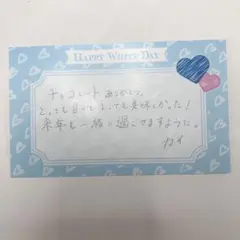 HAPPY WHITE DAY
チョコレートありがとう。
とっても甘くてとっても美味しかった!
来年も一緒に過ごせますように。
カイ